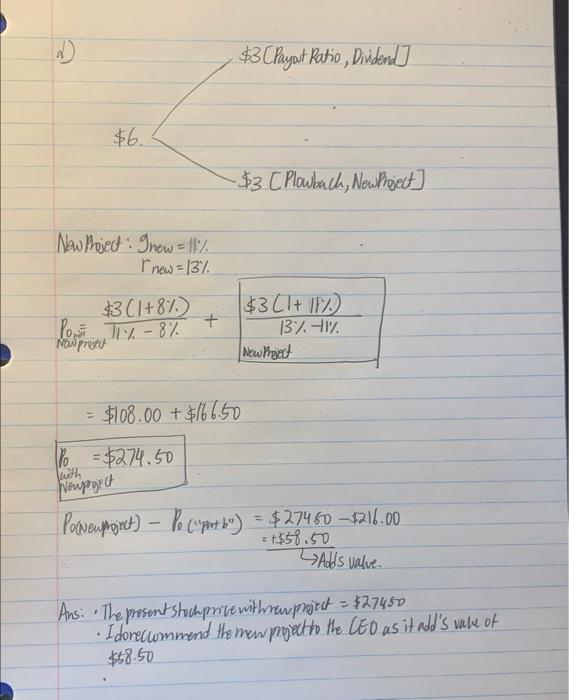 d)
$3 [Payout Ratio, Dividend]
$6.
$3 [Plowback, New Project]
New Project: gnew = 11%
rnew = 13%
P0 with New project = $3(1+8%) / 11% - 8% + $3(1+11%) / 13% - 11%
New Project
= $108.00 + $166.50
P0 with New project = $274.50
P0(New project) - P0 ("part b") = $27450 - $216.00
= +$58.50
↳ Adds value.
Ans: • The present stock price with new project = $27450
• I do reccommend the new project to the CEO as it add's value of
$58.50
•